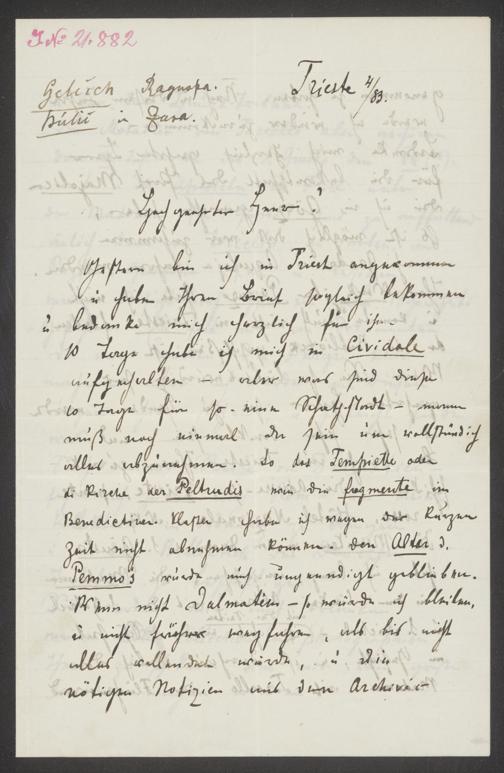 J.№ 21.882
Gelcich Ragusa.
Bulić in Zara.
Trieste 4/83.
Hochgeehrter Herr!
Gestern bin ich in Triest angekommen
u habe Ihren Brief sogleich bekommen
u bedanke mich herzlich für ihn.
10 Tage habe ich mich in Cividale
aufgehalten – aber was sind diese
10 Tage für so eine Schatzstadt – man
muß noch einmal da sein um vollständich
alles abzunehmen. So das Tempietto oder
di Kirche der Peltrudis – wie die fragmente im
Benedictiner Kloster habe ich wegen der Kurzen
Zeit nicht abnehmen können. Den Altar d.
Pemmos würde auch ungeendigt geblieben.
Wenn nicht Dalmatien – so würde ich bleiben,
u nicht früher wegfahren, als bis nicht
alles vollendet würde, u die
nötigen Notizien aus dem Archivio